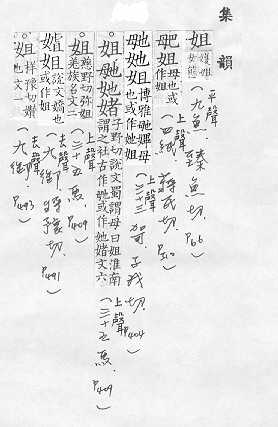 集韻
姐 女態 平聲 (九魚) 臻魚切 P66
毑 母也或作姐 上聲 (四紙) 蔣氏切 P310
博雅毑媓母也或作她姐 上聲 (三十三哿) 子我切 P404
姐 她 媎 子野切說文蜀謂母曰姐淮南謂之社古作毑或作她媎文六 上聲 (三十五馬) P409
姐 慈野切彌姐羌族名文二 上聲 (三十五馬) P409
姐 說文嬌也或作姐 去聲 (九御) 將豫切 P491
姐 祥豫切嬾也文一 去聲 (九御) P493